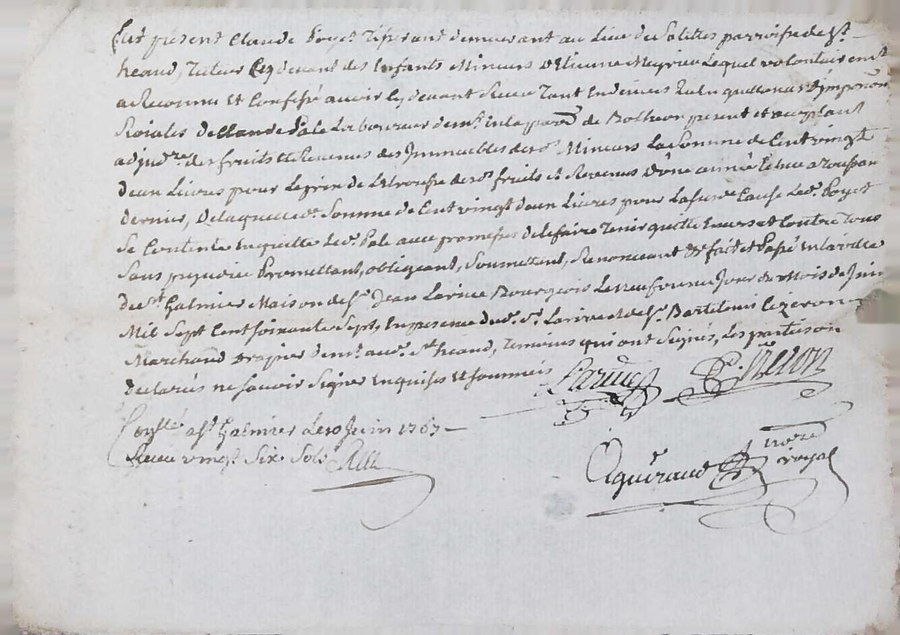 Fut présent Claude Poyet Tisserant demeurant au Lieu de parroisse de St
heand, Tuteur cy devant des Enfants Mineurs D'Etienne Lequel volontairemt
a Reconnu et Confessé avoir cy devant Receu Tant En deniers qu'En quittances d'imposions
Roialles de Claude Pale Laboureur demt en la parse de present et acceptant
adjudre des fruits et Revenus des Immeubles des ds Mineurs La Somme de Cent vingt
deux Livres pour Le prix de La trousse des ds fruits et Revenus D'une année Echue a toussaint
dernier, De laquelle de Somme de Cent vingt deux Livres pour La susde Cause Le dt Poyet
Se Contente En quitte Le dt Pale avec promesses de le faire Tenir quitte Envers et Contre Tous
Sans prejudice Promettant, obligeant, Soumettant, Renonceant &c fait et Passé En la ville
de St Galmier Maison de Sr Jean Larive Bourgeois Le neufvieme Jour du Mois de Juin
Mil Sept Cent Soixante Sept, En presence du dt Sr Larive et de Sr Bartelemi
Marchand Drapier demt au dt St heand, Temoins qui ont Signés, Les parties on
declarés ne Savoir Signer Enquises et Sommées
Larive
Conllé a St Galmier Le 10 Juin 1767
Receu vingt Six Sols
nore
royal